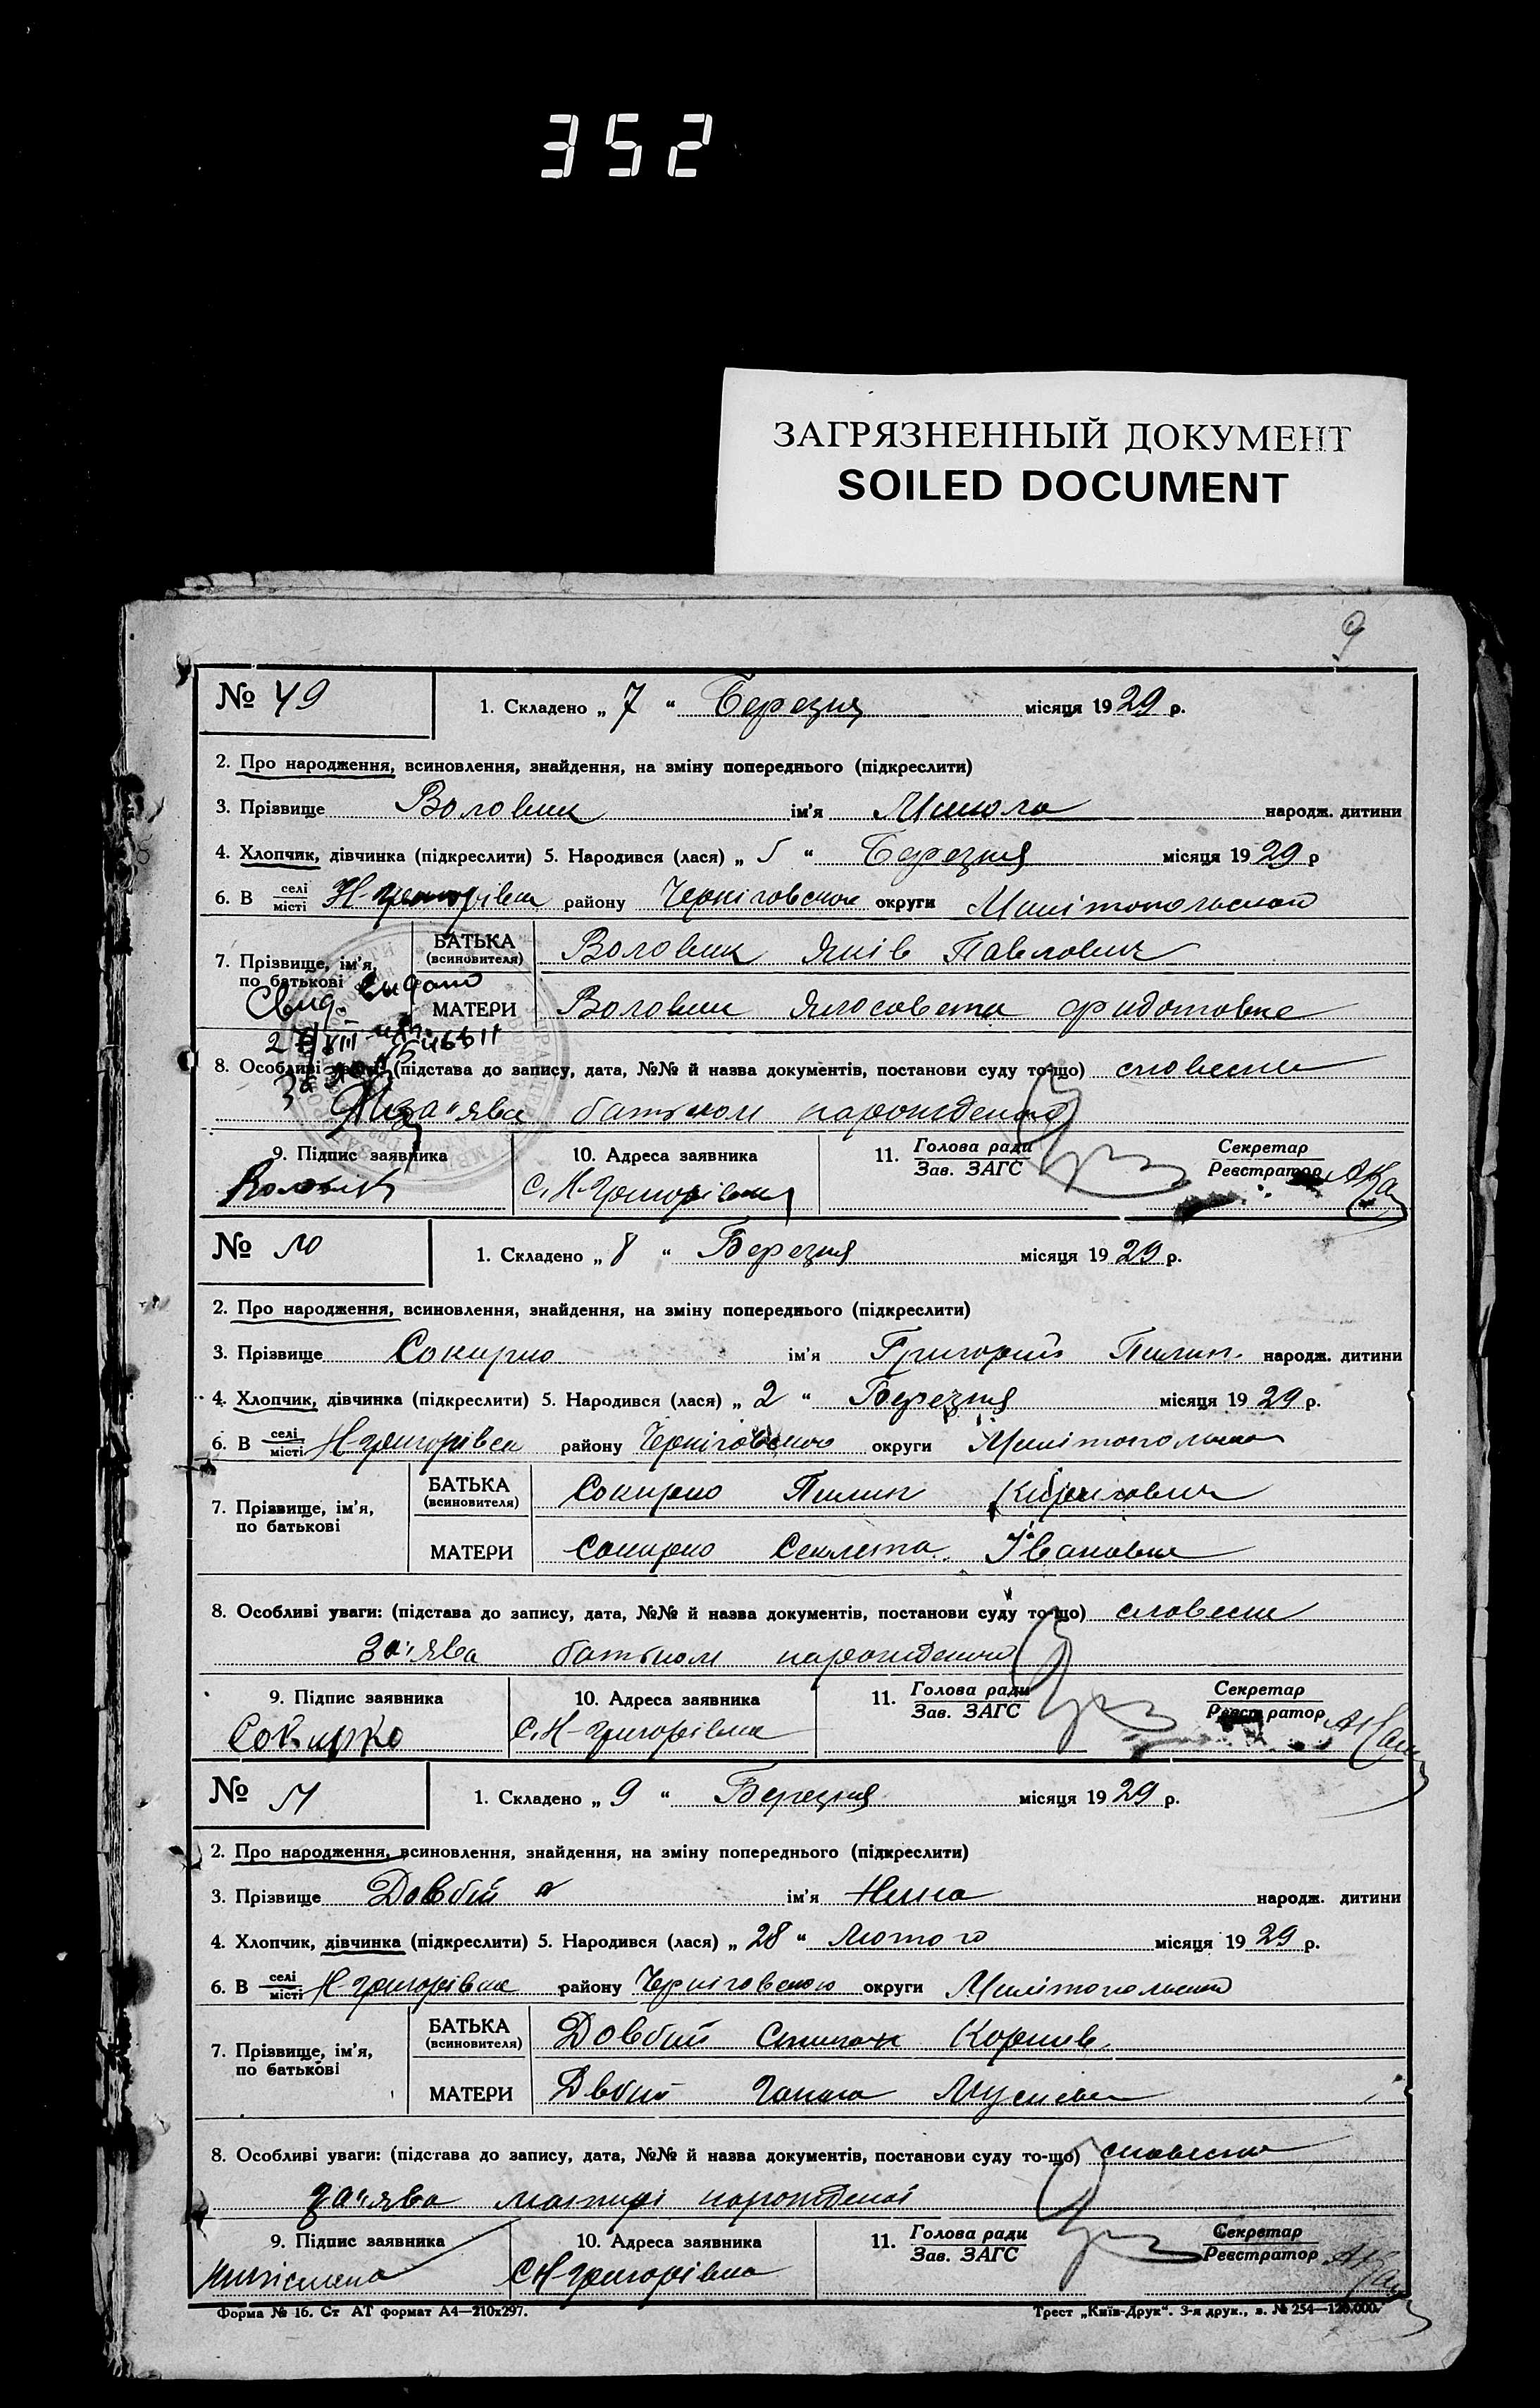 352
ЗАГРЯЗНЕННЫЙ ДОКУМЕНТ
SOILED DOCUMENT
9
№ 49
1. Складено „ 7 “ Березня місяця 1929 р.
2. Про народження, всиновлення, знайдення, на зміну попереднього (підкреслити)
3. Прізвище Воловик ім'я Микола народж. дитини
4. Хлопчик, дівчинка (підкреслити) 5. Народився (лася) „ 5 “ Березня місяця 1929 р
6. В селі/місті Н-Григорівка району Черніговского округи Милітопольской
7. Прізвище, ім'я, по батькові
БАТЬКА (всиновителя) Воловик Яків Павлович
МАТЕРИ Воловик Ялосовета Фидотовна
Свид.
8. Особливі уваги: (підстава до запису, дата, №№ й назва документів, постанови суду то-що) словесна
за'ява батьком нарожденой
9. Підпис заявника
10. Адреса заявника
11. Голова ради / Зав. ЗАГС
Секретар / Реєстратор
Воловик
С. Н-Григорівка
№ 50
1. Складено „ 8 “ Березня місяця 1929 р.
2. Про народження, всиновлення, знайдення, на зміну попереднього (підкреслити)
3. Прізвище Сокирко ім'я Григорий Пилип. народж. дитини
4. Хлопчик, дівчинка (підкреслити) 5. Народився (лася) „ 2 “ Березня місяця 1929 р.
6. В селі/місті Н-Григорівка району Черніговского округи Милітопольской
7. Прізвище, ім'я, по батькові
БАТЬКА (всиновителя) Сокирко Пилип Кирилович
МАТЕРИ Сокирко Секлета Івановна
8. Особливі уваги: (підстава до запису, дата, №№ й назва документів, постанови суду то-що) словесна
за'ява батьком нарожденой
9. Підпис заявника
10. Адреса заявника
11. Голова ради / Зав. ЗАГС
Секретар / Реєстратор
Сокирко
С. Н-Григорівка
№ 51
1. Складено „ 9 “ Березня місяця 1929 р.
2. Про народження, всиновлення, знайдення, на зміну попереднього (підкреслити)
3. Прізвище Довбий ім'я Нина народж. дитини
4. Хлопчик, дівчинка (підкреслити) 5. Народився (лася) „ 28 “ Лютого місяця 1929 р.
6. В селі/місті Н-Григорівка району Черніговского округи Милітопольской
7. Прізвище, ім'я, по батькові
БАТЬКА (всиновителя) Довбий Степан Корнив.
МАТЕРИ Двбий Ганна Мусиевна
8. Особливі уваги: (підстава до запису, дата, №№ й назва документів, постанови суду то-що) словесна
за'ява матирі нарожденої
9. Підпис заявника
10. Адреса заявника
11. Голова ради / Зав. ЗАГС
Секретар / Реєстратор
С Н Григорівка
Форма № 16. Ст АТ формат А4—210х297.
Трест „Київ-Друк“. 3-я друк., з. № 254—120.000.